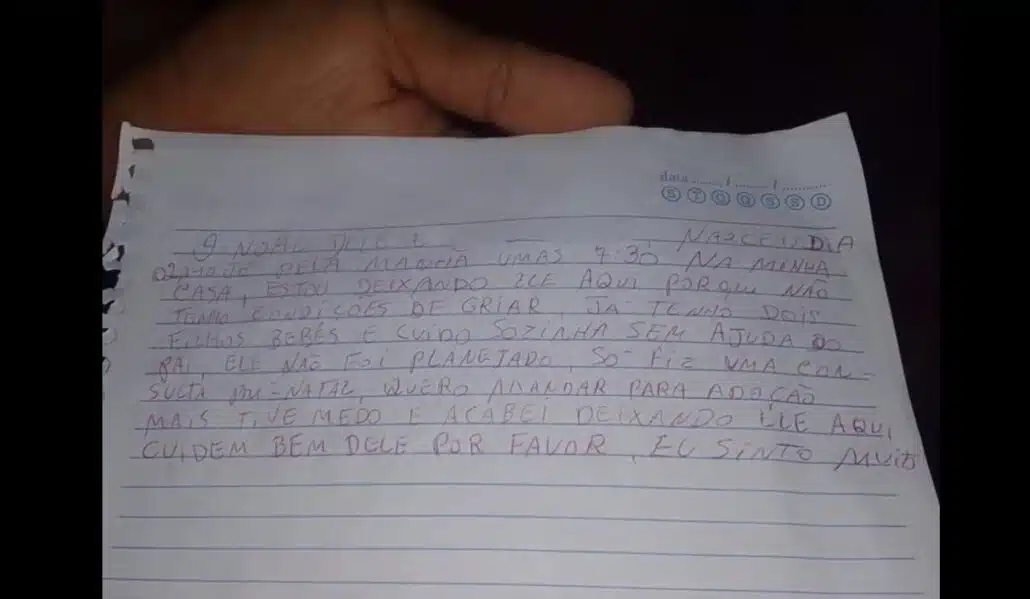 data ....../......./..........
S T Q Q S S D
NASCEU DIA
PELA MANHÃ UMAS 7:30 NA MINHA
CASA, ESTOU DEIXANDO ELE AQUI PORQUE NÃO
TENHO CONDIÇÕES DE GRIAR, JÁ TENHO DOIS
FILHOS BEBÊS E CUIDO SOZINHA SEM AJUDA DO
PAI, ELE NÃO FOI PLANEJADO, SO FIZ UMA CON-
SULTA PRE-NATAL, QUERO MANDAR PARA ADOÇÃO
MAIS TIVE MEDO E ACABEI DEIXANDO ELE AQUI,
CUIDEM BEM DELE POR FAVOR, EU SINTO MUITO